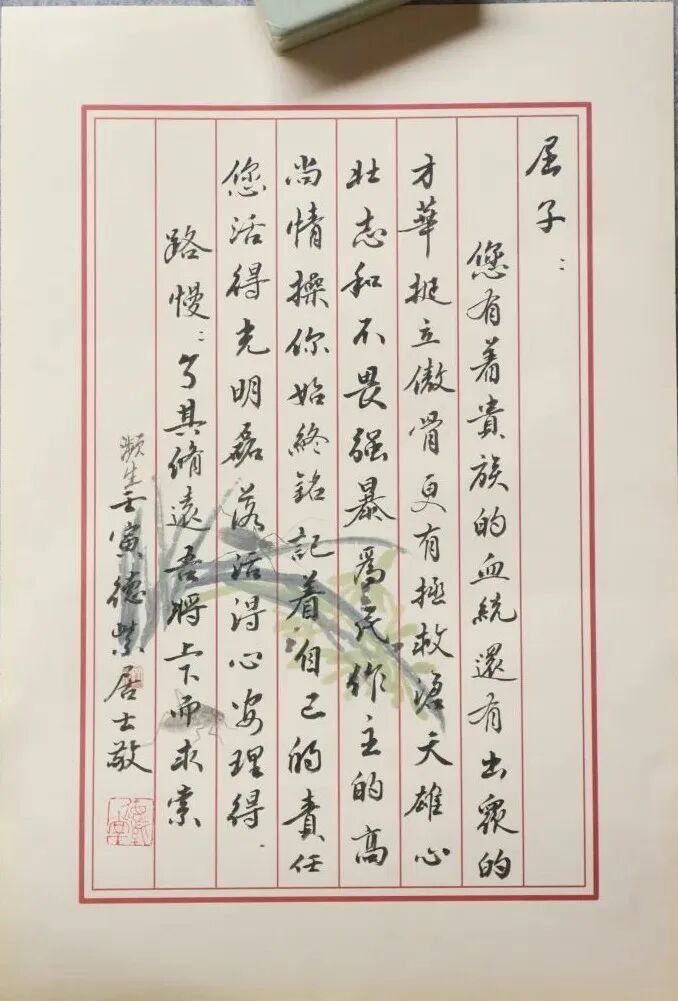 屈子：
您有着貴族的血統還有出衆的
才華挺立傲骨更有拯救滔天雄心
壮志和不畏强暴爲民作主的高
尚情操你始終銘記着自己的責任
您活得光明磊落活得心安理得.
路慢：兮其脩遠吾將上下而求索
瀕生壬寅德紫居士敬